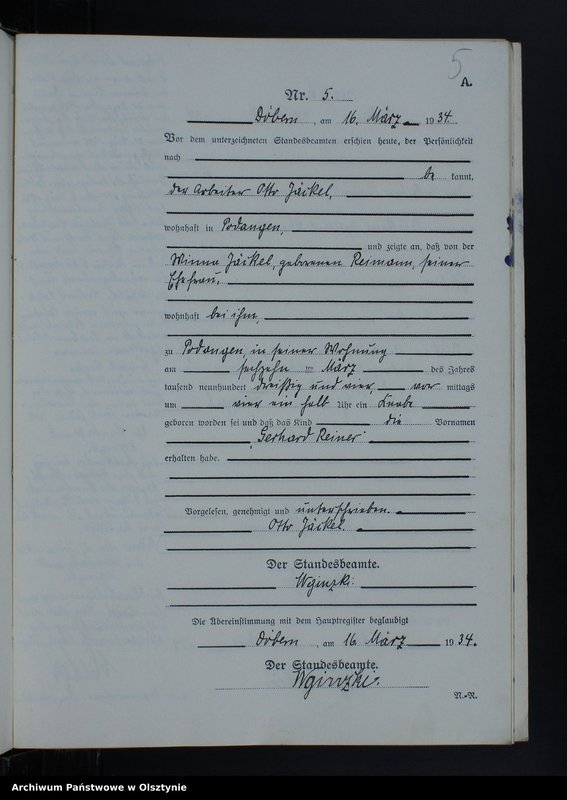 5
A.
Nr. 5.
Döbern, am 16. März 1934.
Vor dem unterzeichneten Standesbeamten erschien heute, der Persönlichkeit
nach
be kannt,
der Arbeiter Otto Jäckel,
wohnhaft in Podangen,
und zeigte an, daß von der
Minna Jäckel, geborenen Reimann, seiner
Ehefrau,
wohnhaft bei ihm,
zu Podangen, in seiner Wohnung
am sechzehn ten März des Jahres
tausend neunhundert dreißig und vier, vor mittags
um vier ein halb Uhr ein Knabe
geboren worden sei und daß das Kind die Vornamen
Gerhard Reiner
erhalten habe.
Vorgelesen, genehmigt und unterschrieben.
Otto Jäckel.
Der Standesbeamte.
Die Übereinstimmung mit dem Hauptregister beglaubigt
Döbern, am 16. März 1934.
Der Standesbeamte.
N.-R.
Archiwum Państwowe w Olsztynie